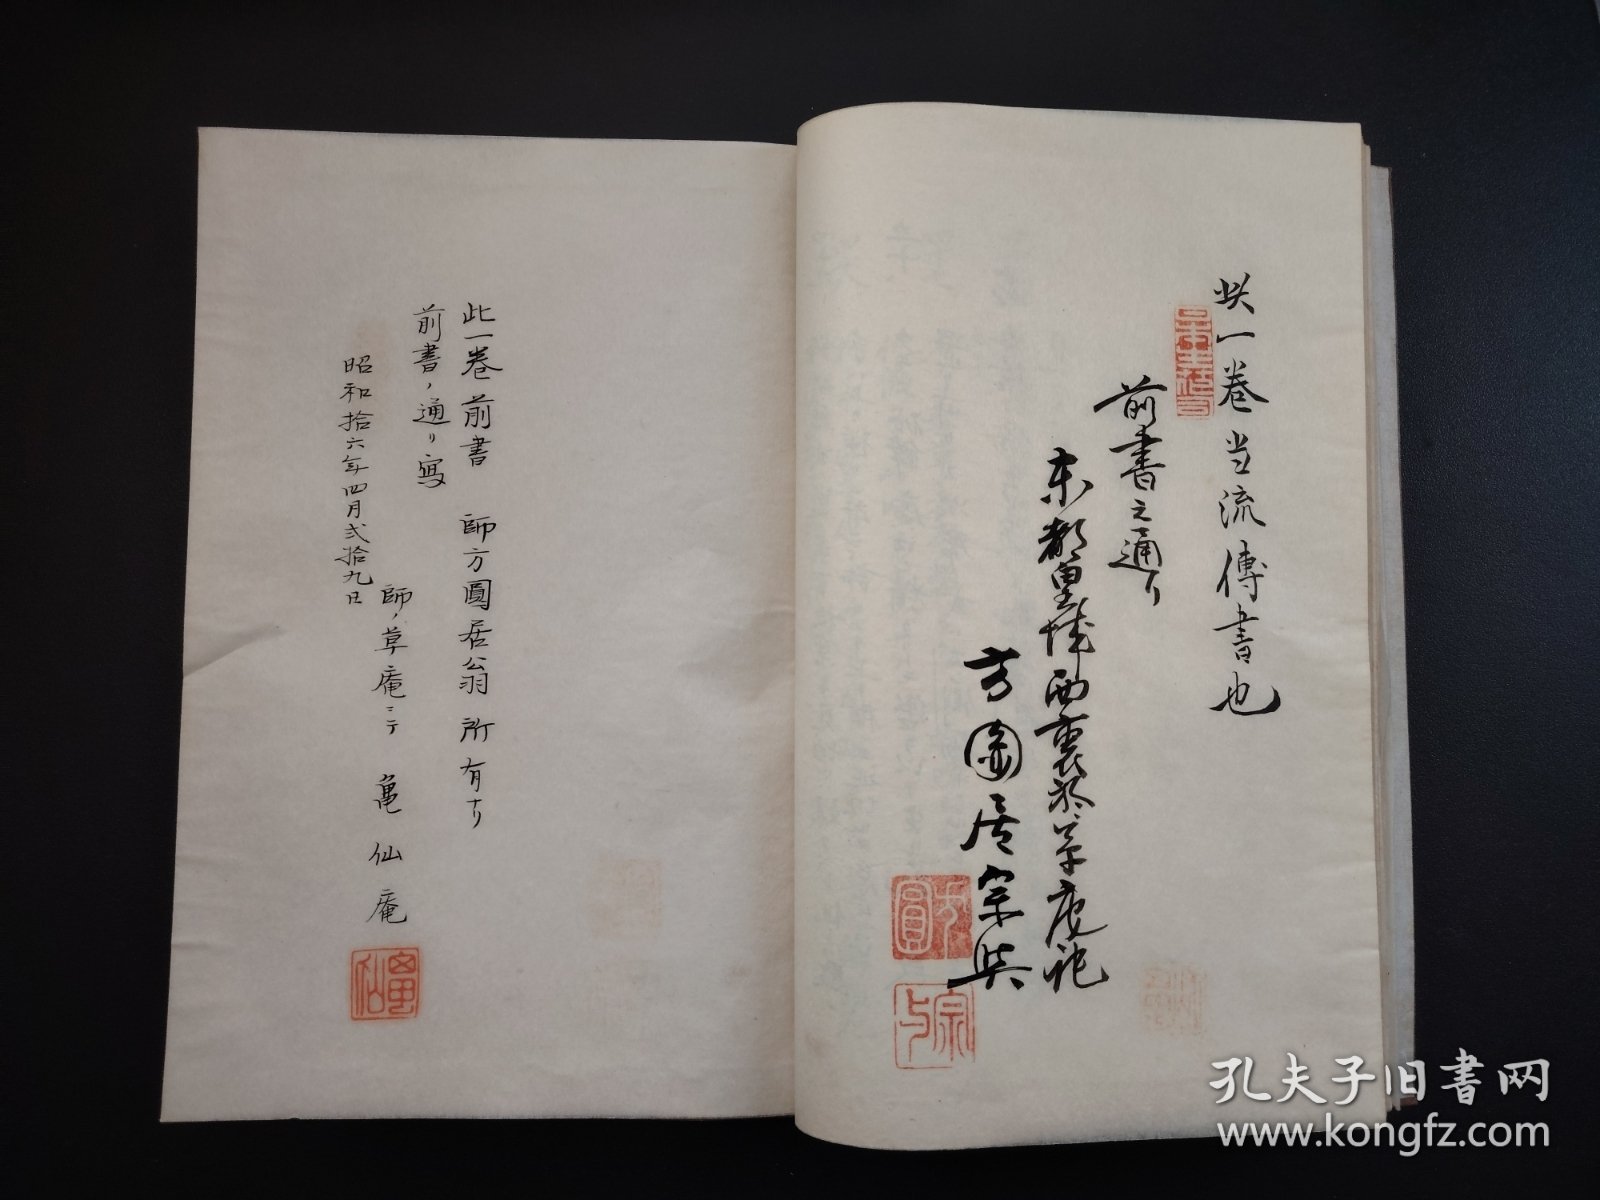 此一巻当流傳書也
前書之通リ
東都皇城西裏於草庵
方圓居宗與
方圓
宗与
此一巻前書 師方圓居翁所有ナリ
前書ノ通リ寫
師ノ草庵ニテ 亀仙庵
昭和拾六年四月弐拾九日
亀仙
孔夫子旧书网
www.kongfz.com